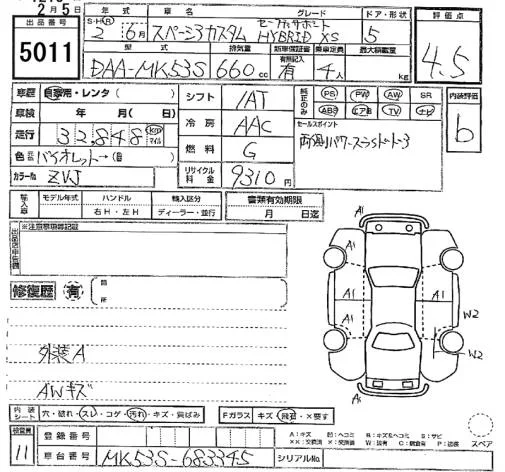 2月5日
出品番号 5011
年式 S・H(R) 2年 6月 車名 スペーシアカスタム グレード セーフティサポート HYBRID XS ドア・形状 5 評価点 4.5
型式 DAA-MK53S 排気量 660cc 新車保証書 有無記入 有 乗車定員 4人 最大積載量 kg
車歴 自家用・レンタ( )
車検 年 月( 日)
走行 32,848 km マイル
色 バイオレット→(自 )
カラーNo ZVJ
シフト IAT
冷房 AAC
燃料 G
リサイクル料金 9310円
純正のみ PS PW AW SR ABS エアB TV ナビ
セールスポイント
両側パワースライドドア
内装評価 b
輸入車 モデル年式 ハンドル 右H・左H 輸入区分 ディーラー・並行
書類有効期限 月 日迄
※注意事項等記載
修復歴 有 箇所
外装A
AWキズ
A1
A1
A1
A1
A1
W2
W2
A1
内装シート 穴・破れ・スレ・コゲ・汚れ・キズ・黄ばみ
Fガラス キズ・飛石・×要す
検査員 11
登録番号
車台番号 MK53S-683345 シリアルNo
A:キズ
S:サビ
スペア